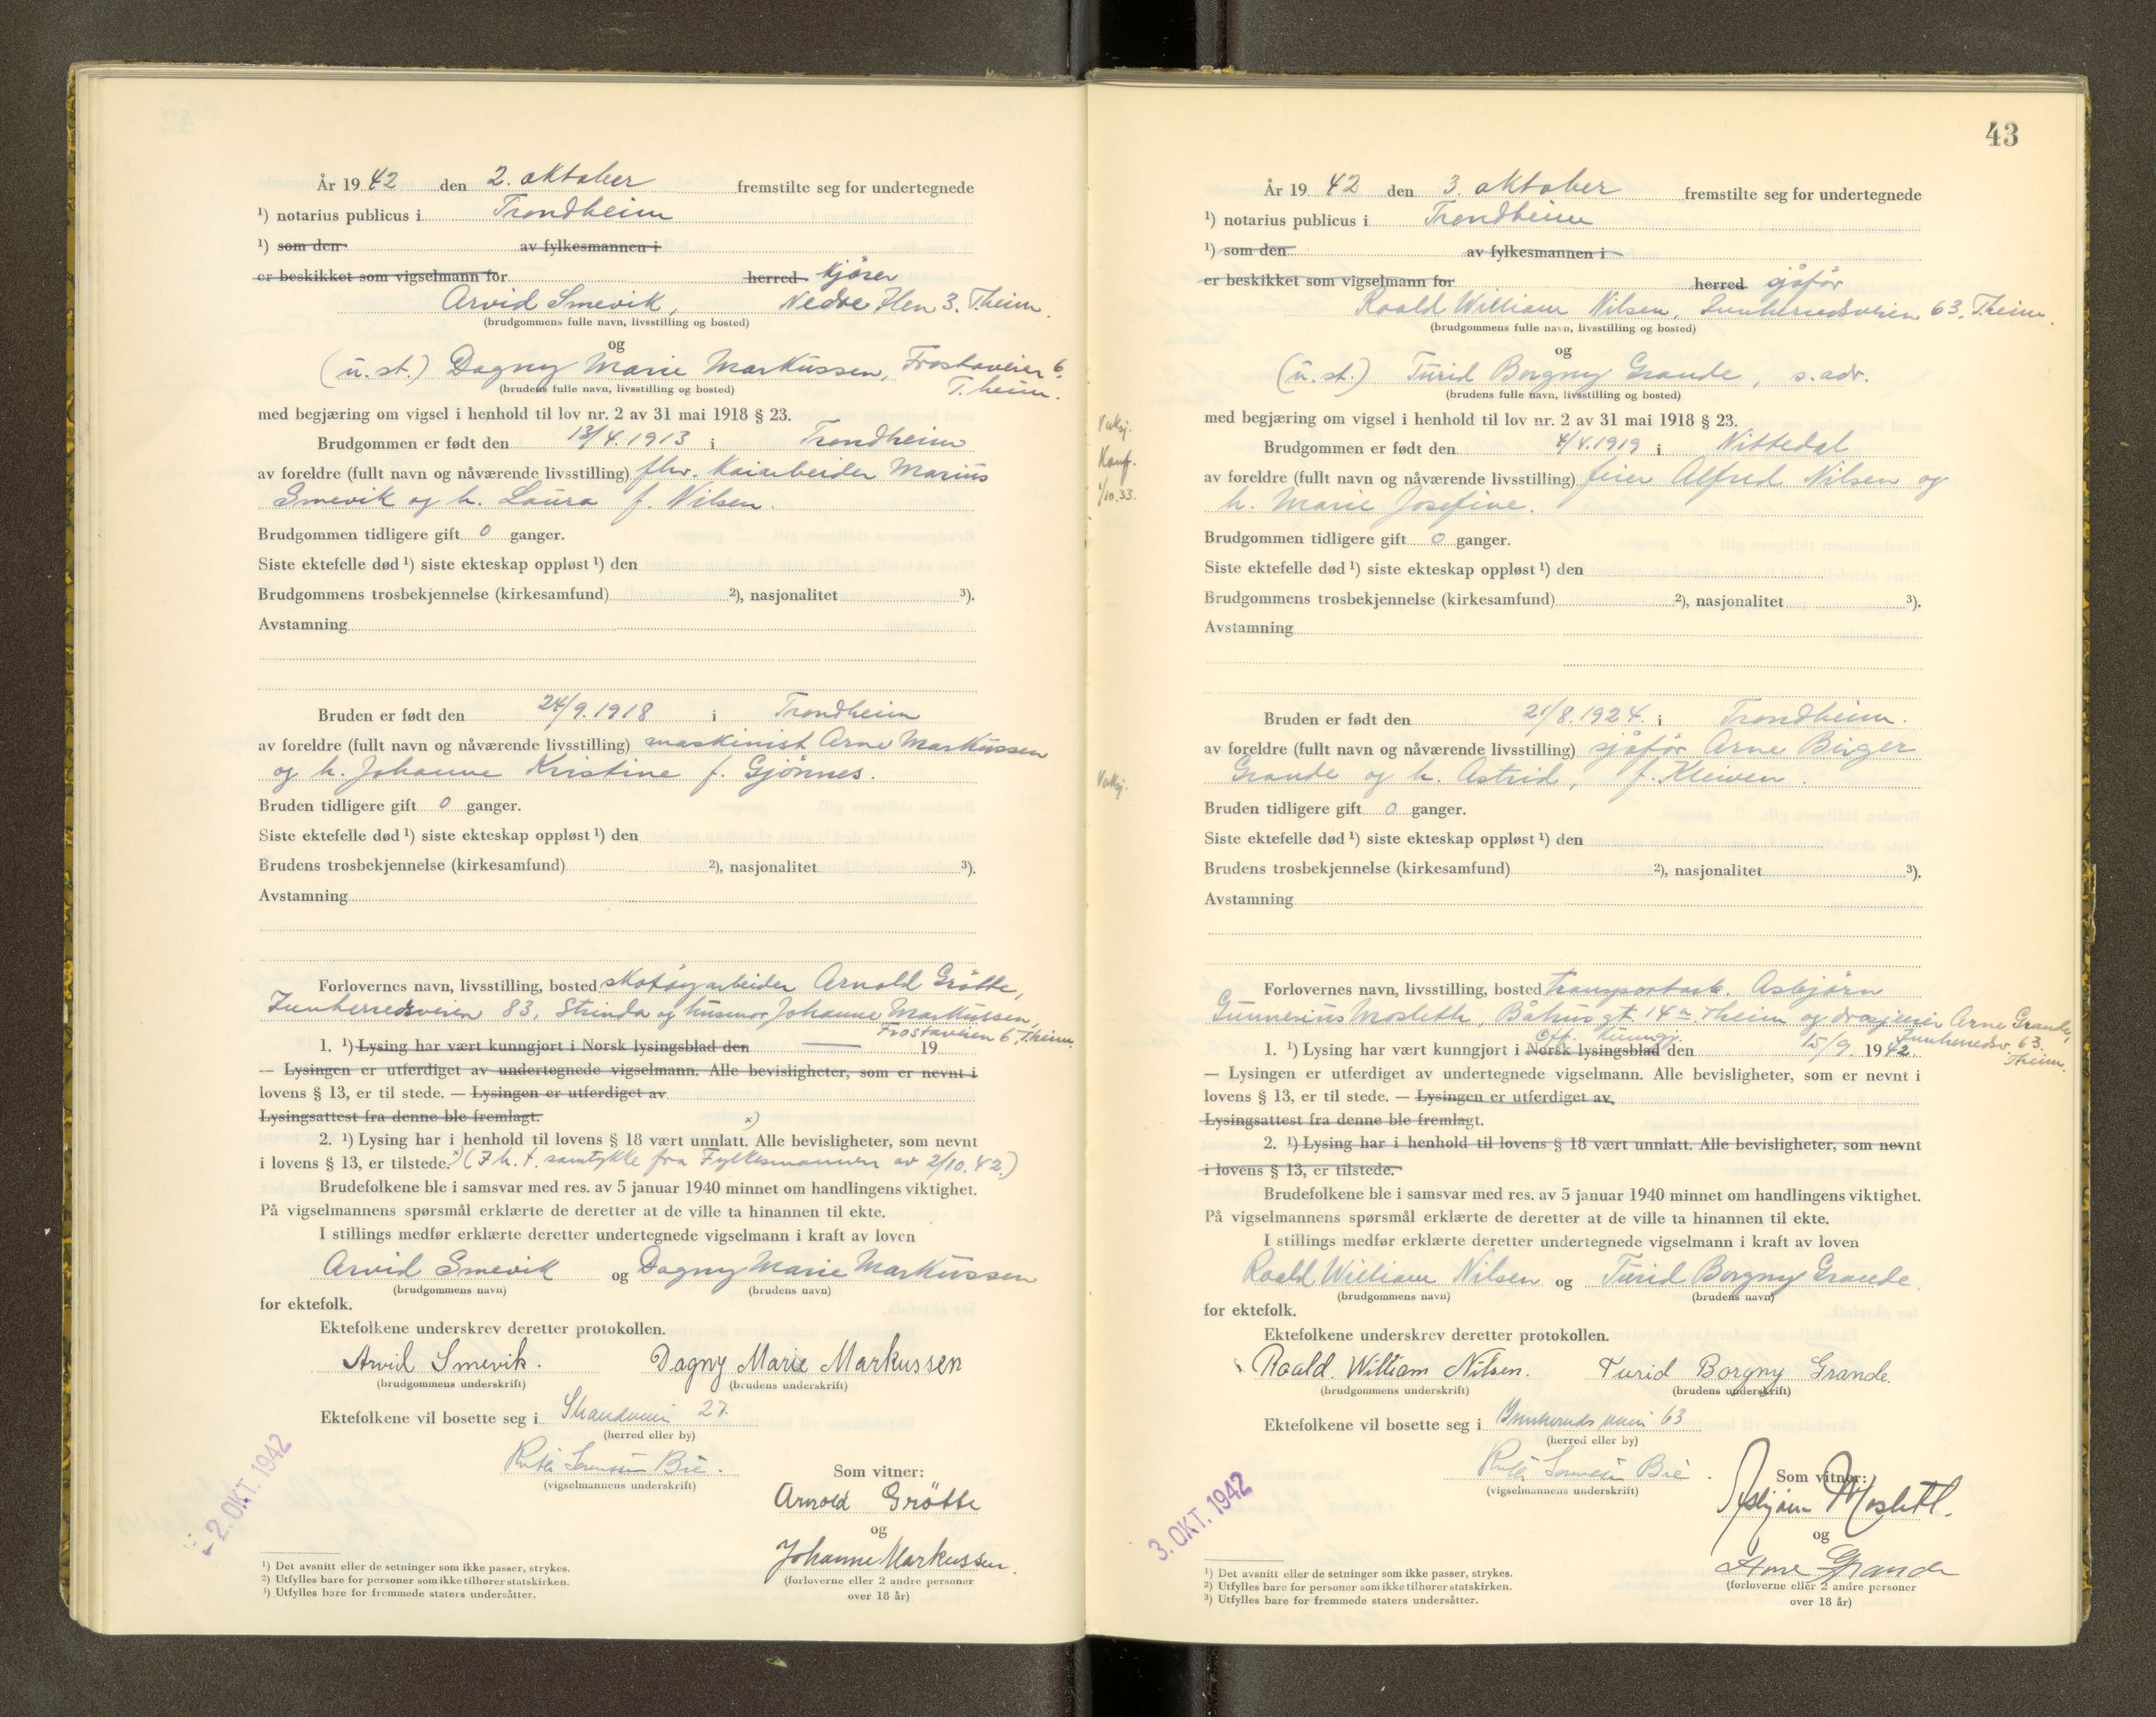 År 1942 den 2. oktober fremstilte seg for undertegnede
¹) notarius publicus i Trondheim
¹) som den av fylkesmannen i
er beskikket som vigselmann for herred kjører
Arvid Smevik, Nedre Ilen 3. T.heim.
(brudgommens fulle navn, livsstilling og bosted)
og
(u. st.) Dagny Marie Markussen, Frostaveien 6,
T.heim.
(brudens fulle navn, livsstilling og bosted)
med begjæring om vigsel i henhold til lov nr. 2 av 31 mai 1918 § 23.
Brudgommen er født den 13/4. 1913 i Trondheim
av foreldre (fullt navn og nåværende livsstilling) fhv. Kaiarbeider Marius
Smevik og h. Laura f. Nilsen.
Brudgommen tidligere gift 0 ganger.
Siste ektefelle død ¹) siste ekteskap oppløst ¹) den
Brudgommens trosbekjennelse (kirkesamfund) ²), nasjonalitet ³).
Avstamning
Bruden er født den 24/9. 1918 i Trondheim
av foreldre (fullt navn og nåværende livsstilling) maskinist Arne Markussen
og h. Johanne Kristine f. Gjönnes.
Bruden tidligere gift 0 ganger.
Siste ektefelle død ¹) siste ekteskap oppløst ¹) den
Brudens trosbekjennelse (kirkesamfund) ²), nasjonalitet ³).
Avstamning
Forlovernes navn, livsstilling, bosted skotøyarbeider Arnold Grötte,
Innherredsveien 83, Strinda og husmor Johanne Markussen,
Frostaveien 6, T.heim.
1. ¹) Lysing har vært kunngjort i Norsk lysingsblad den 19
— Lysingen er utferdiget av undertegnede vigselmann. Alle bevisligheter, som er nevnt i
lovens § 13, er til stede. — Lysingen er utferdiget av
Lysingsattest fra denne ble fremlagt. x)
2. ¹) Lysing har i henhold til lovens § 18 vært unnlatt. Alle bevisligheter, som nevnt
i lovens § 13, er tilstede. x) (I h. t. samtykke fra Fylkesmannen av 2/10. 42.)
Brudefolkene ble i samsvar med res. av 5 januar 1940 minnet om handlingens viktighet.
På vigselmannens spørsmål erklærte de deretter at de ville ta hinannen til ekte.
I stillings medfør erklærte deretter undertegnede vigselmann i kraft av loven
Arvid Smevik og Dagny Marie Markussen
(brudgommens navn) (brudens navn)
for ektefolk.
Ektefolkene underskrev deretter protokollen.
Arvid Smevik. Dagny Marie Markussen
(brudgommens underskrift) (brudens underskrift)
Ektefolkene vil bosette seg i Strandveien 27.
(herred eller by)
Ruth Sorenssen Bie.
(vigselmannens underskrift)
Som vitner:
Arnold Grötte
og
Johanne Markussen.
(forloverne eller 2 andre personer
over 18 år)
- 2. OKT. 1942
¹) Det avsnitt eller de setninger som ikke passer, strykes.
²) Utfylles bare for personer som ikke tilhører statskirken.
³) Utfylles bare for fremmede staters undersåtter.
43
År 1942 den 3. oktober fremstilte seg for undertegnede
¹) notarius publicus i Trondheim
¹) som den av fylkesmannen i
er beskikket som vigselmann for herred sjåfør
Roald William Nilsen, Innherredsveien 63, T.heim.
(brudgommens fulle navn, livsstilling og bosted)
og
(u. st.) Turid Borgny Grande, s. adr.
(brudens fulle navn, livsstilling og bosted)
med begjæring om vigsel i henhold til lov nr. 2 av 31 mai 1918 § 23.
Vaks.
Brudgommen er født den 4/4. 1919 i Nittedal
Konf.
av foreldre (fullt navn og nåværende livsstilling) feier Alfred Nilsen og
1/10. 33.
h. Marie Josefine.
Brudgommen tidligere gift 0 ganger.
Siste ektefelle død ¹) siste ekteskap oppløst ¹) den
Brudgommens trosbekjennelse (kirkesamfund) ²), nasjonalitet ³).
Avstamning
Bruden er født den 21/8. 1924. i Trondheim.
av foreldre (fullt navn og nåværende livsstilling) sjåfør Arne Birger
Vaks.
Grande og h. Astrid, f. Kleiven.
Bruden tidligere gift 0 ganger.
Siste ektefelle død ¹) siste ekteskap oppløst ¹) den
Brudens trosbekjennelse (kirkesamfund) ²), nasjonalitet ³).
Avstamning
Forlovernes navn, livsstilling, bosted transportarb. Asbjørn
Gunnerius Mosleth, Båhusgt. 14 a. T.heim og drosjeeier Arne Grande,
Innherredsv. 63.
T.heim.
Off. kunngj.
1. ¹) Lysing har vært kunngjort i Norsk lysingsblad den 15/9. 1942.
— Lysingen er utferdiget av undertegnede vigselmann. Alle bevisligheter, som er nevnt i
lovens § 13, er til stede. — Lysingen er utferdiget av
Lysingsattest fra denne ble fremlagt.
2. ¹) Lysing har i henhold til lovens § 18 vært unnlatt. Alle bevisligheter, som nevnt
i lovens § 13, er tilstede.
Brudefolkene ble i samsvar med res. av 5 januar 1940 minnet om handlingens viktighet.
På vigselmannens spørsmål erklærte de deretter at de ville ta hinannen til ekte.
I stillings medfør erklærte deretter undertegnede vigselmann i kraft av loven
Roald William Nilsen og Turid Borgny Grande.
(brudgommens navn) (brudens navn)
for ektefolk.
Ektefolkene underskrev deretter protokollen.
Roald. William Nilsen. Turid Borgny Grande.
(brudgommens underskrift) (brudens underskrift)
Ektefolkene vil bosette seg i Innherredsveien 63
(herred eller by)
Ruth Sorenssen Bie.
(vigselmannens underskrift)
Som vitner:
Asbjørn Mosleth.
og
Arne Grande
(forloverne eller 2 andre personer
over 18 år)
3. OKT. 1942
¹) Det avsnitt eller de setninger som ikke passer, strykes.
²) Utfylles bare for personer som ikke tilhører statskirken.
³) Utfylles bare for fremmede staters undersåtter.